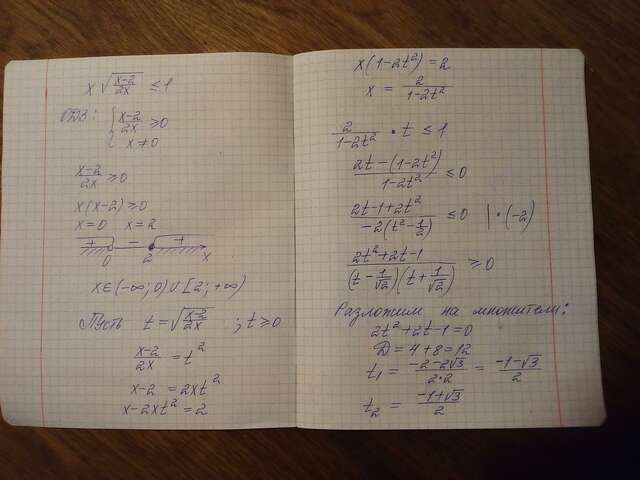 x √((x-2)/(2x)) ≤ 1
ОДЗ: { (x-2)/(2x) ≥ 0
x ≠ 0
(x-2)/(2x) ≥ 0
x(x-2) ≥ 0
x=0 x=2
+ - +
0 2 x
x∈(-∞; 0)∪[2; +∞)
Пусть t = √((x-2)/(2x)) ; t ≥ 0
(x-2)/(2x) = t²
x-2 = 2xt²
x-2xt² = 2
x(1-2t²) = 2
x = 2/(1-2t²)
2/(1-2t²) • t ≤ 1
(2t-(1-2t²))/(1-2t²) ≤ 0
(2t-1+2t²)/(-2(t²-1/2)) ≤ 0 | •(-2)
(2t²+2t-1)/((t-1/√2)(t+1/√2)) ≥ 0
Разложим на множители:
2t²+2t-1=0
D = 4+8=12
t₁ = (-2-2√3)/(2•2) = (-1-√3)/2
t₂ = (-1+√3)/2